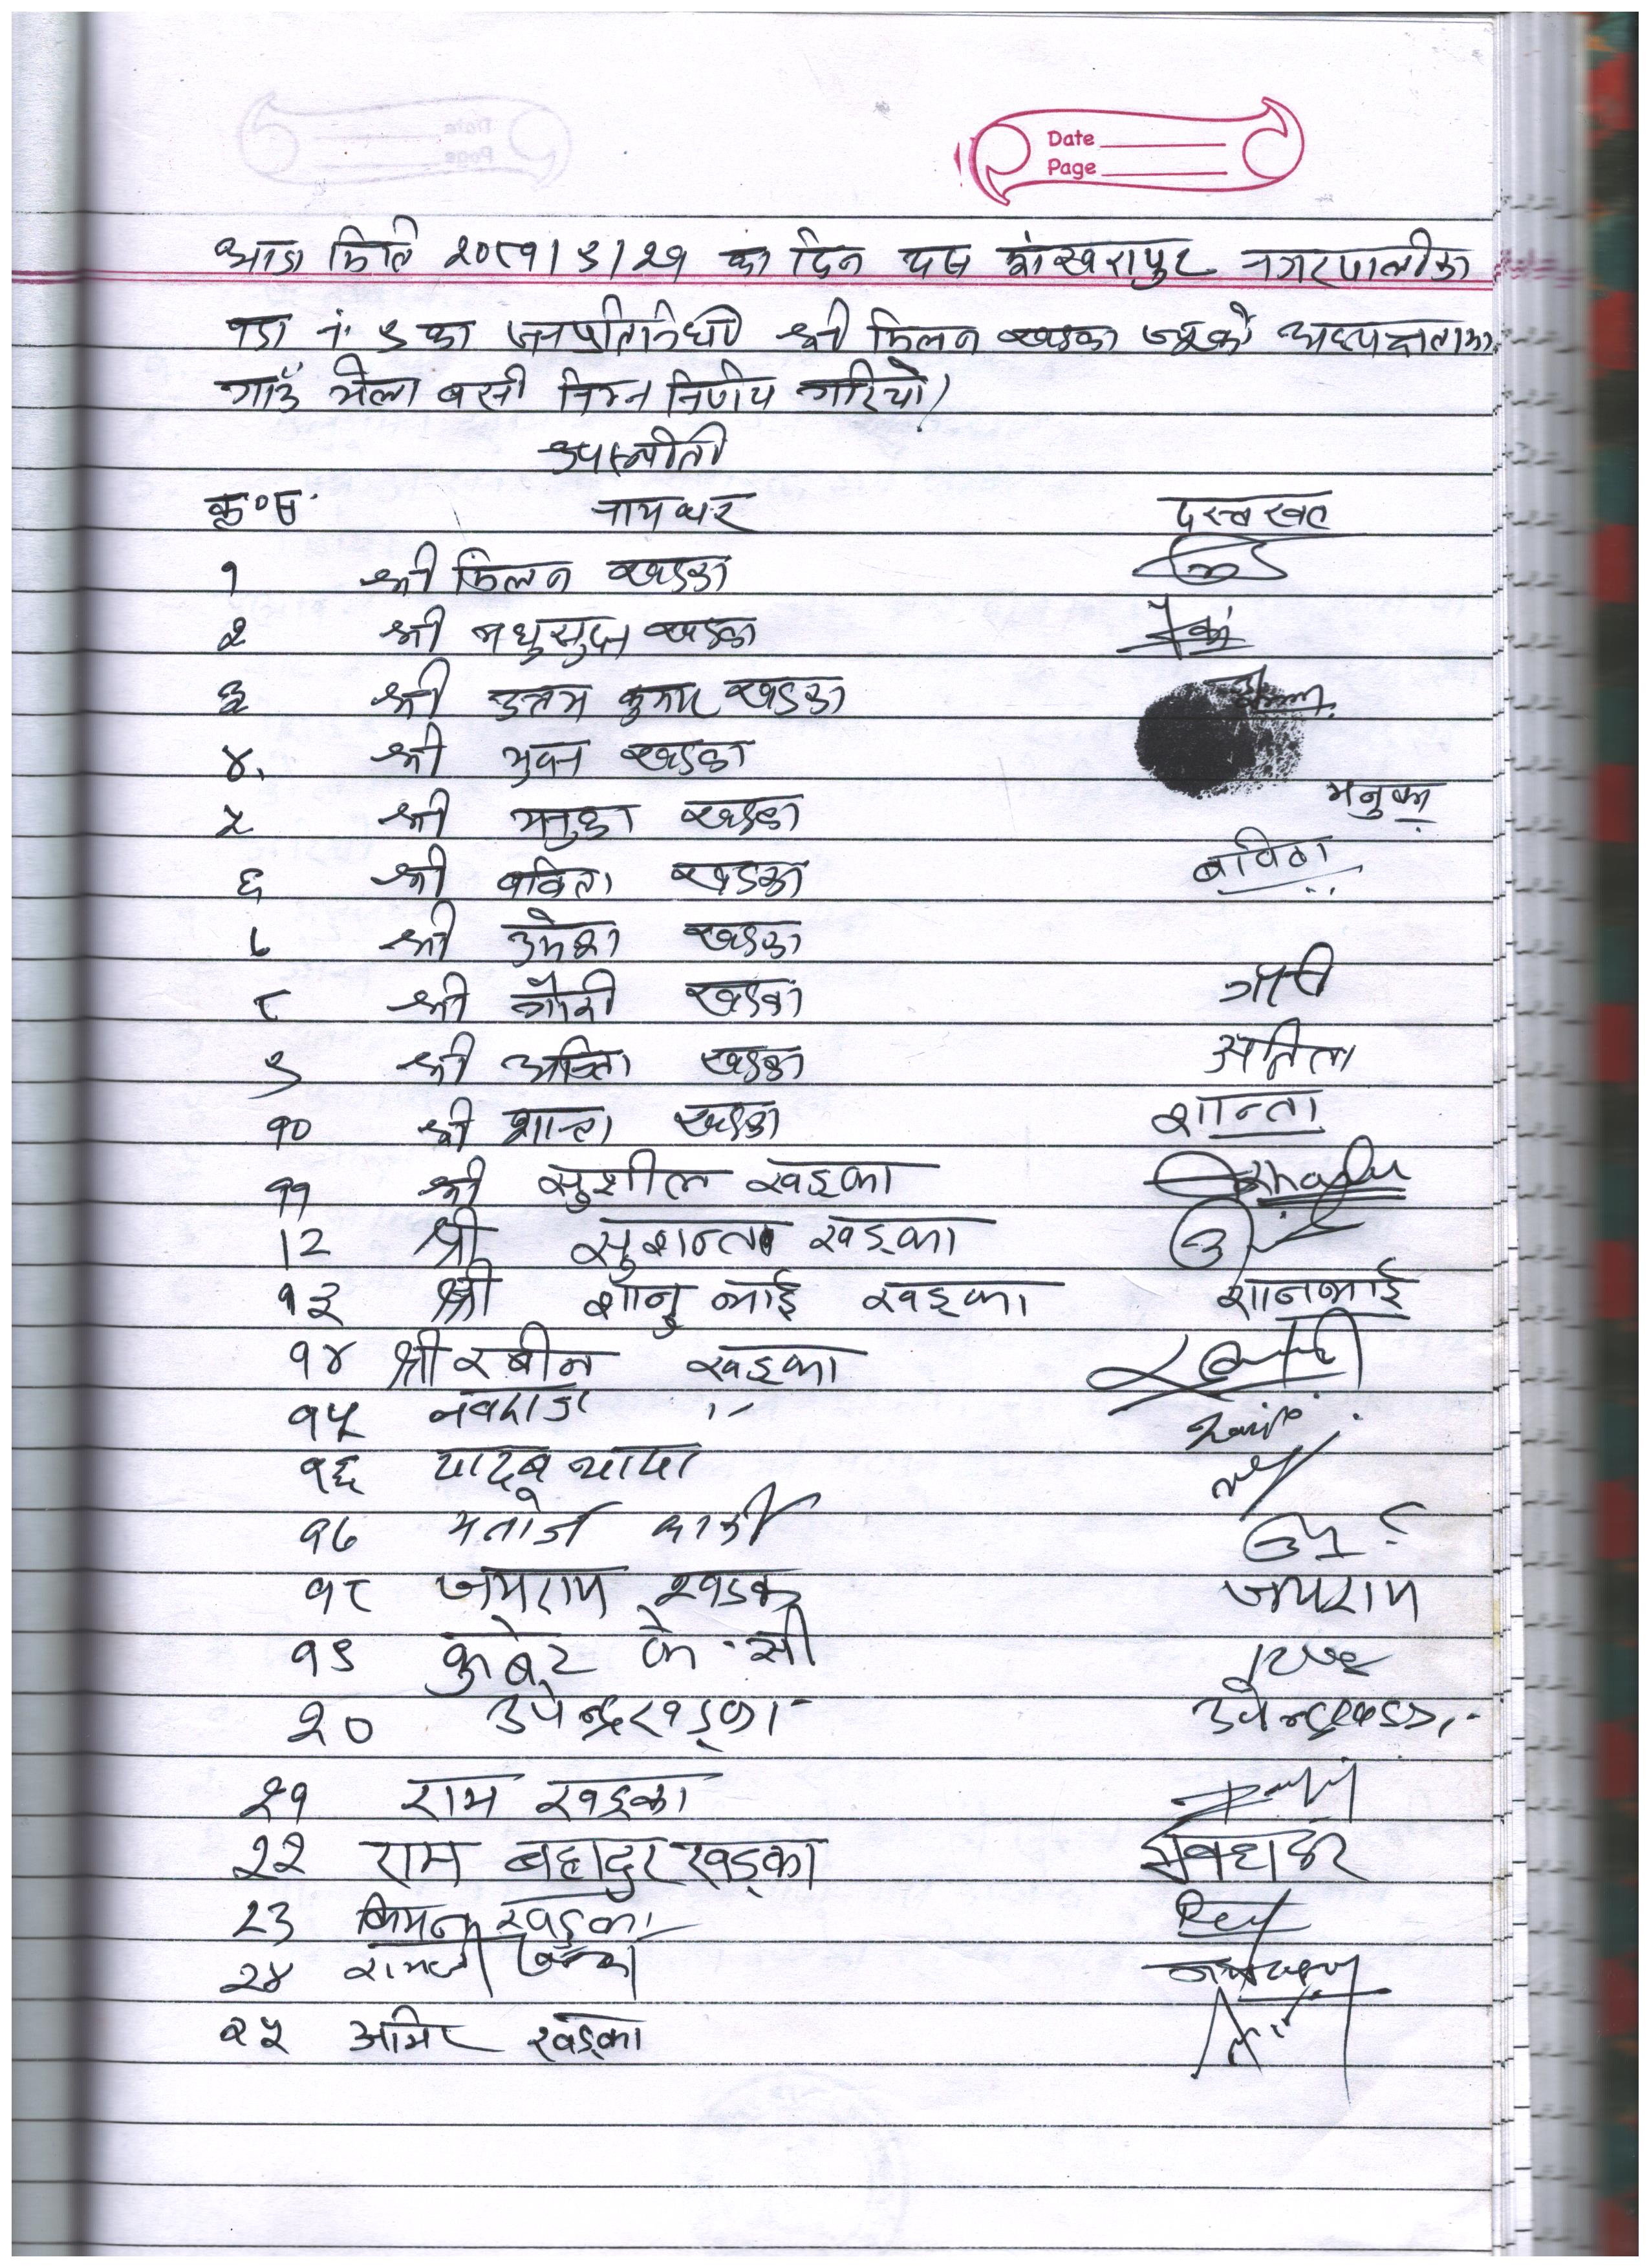 Date
Page
आज मिति २०८१।९।२१ का दिन यस शंखरापुर नगरपालीका
वडा नं ९ का जनप्रतिनिधी श्री मिलन खडका ज्यूको अध्यक्षतामा
गाउँ भेला बसी निम्न निर्णय गरियो।
उपस्थीती
क्र०स. नामथर दस्तखत
१ श्री मिलन खडका
२ श्री मधुसुदन खडका
३ श्री उत्तम कुमार खडका
४. श्री भुवन खडका
५ श्री मनुका खडका मनुका
६ श्री बबिता खडका बबिता
७ श्री उमेश खडका
८ श्री गौरी खडका गौरी
९ श्री अनिता खडका अनिता
१० श्री शान्ता खडका शान्ता
११ श्री सुशील खड्का
12 श्री सुशान्त खड्का
१३ श्री शानु भाई खड्का शानभाई
१४ श्री रबीन खड्का
१५ नवराज ,,
१६ यादव थापा
१७ मनोज कार्की
१८ जयराम खडका जयराम
१९ कुबेर के.सी
२० उपेन्द्र खड्का उपेन्द्र खडका
२१ राम खड्का
२२ राम बहादुर खड्का
२३ खड्का
२४ रामजी
२५ अमिर खड्का